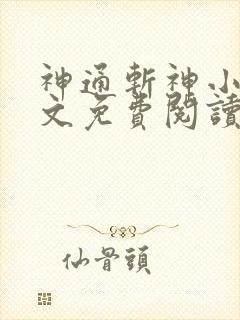 神通斬神小
文免費閱讀
仙骨頭